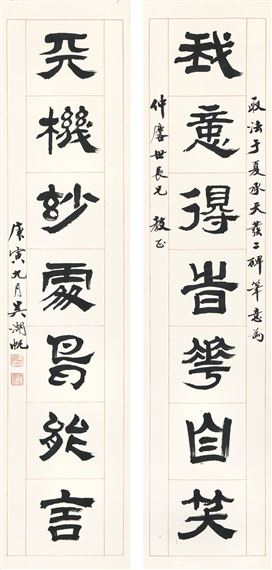 取法于夏承天發二碑筆意為
我意得旹華自笑
仲麐世長兄 教正
天機妙處鳥能言
庚寅九月吴湖帆